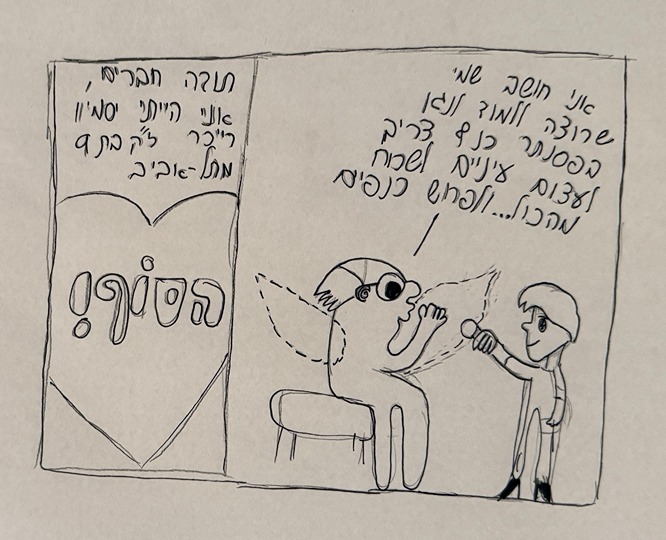 אני חושב שמי
שרוצה ללמוד לנגן
בפסנתר כנף צריך
לעצום עיניים לשכוח
מהכול...ולפרוש כנפיים
תודה חברים,
אני הייתי יסמין
רייכר ז"ק בת 9
מתל-אביב
הסוף!